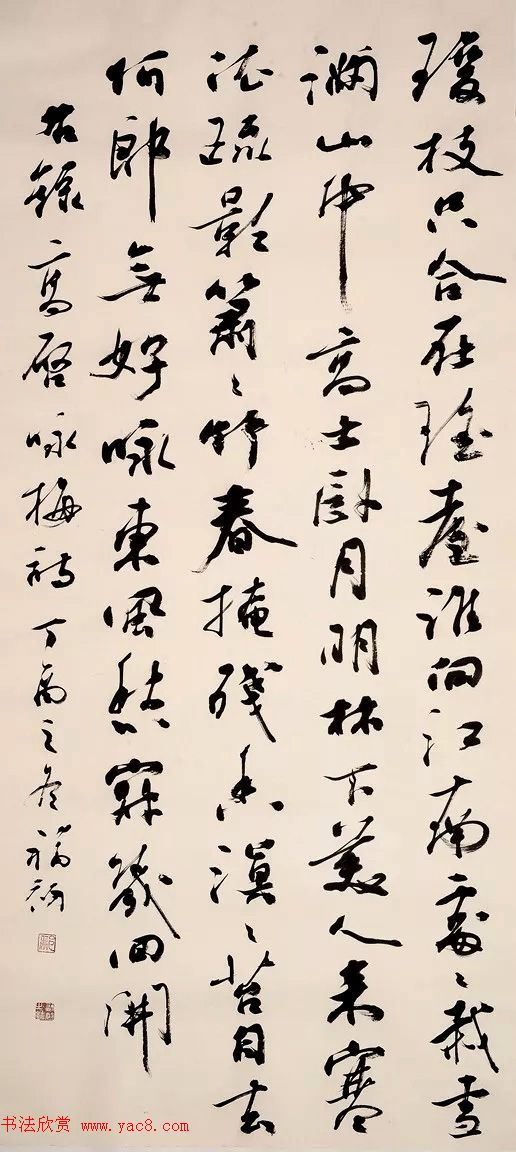 瓊枝只合在瑤臺誰向江南處〻栽雪
滿山中高士卧月明林下美人来寒
依疏影蕭〻竹春掩殘香漠〻苔自去
何郎無好咏東風愁寂幾回開
右錄高启咏梅詩丁酉之冬福
书法欣赏 www.yac8.com